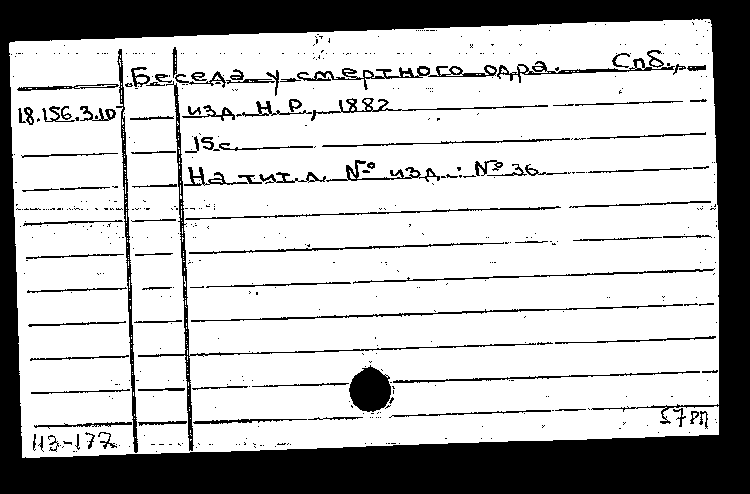 Беседа у смертного одра. Спб.,
18.156.3.107 изд. Н.Р., 1882
15с.
На тит.л. № изд.: № 36
Из-177
57РП